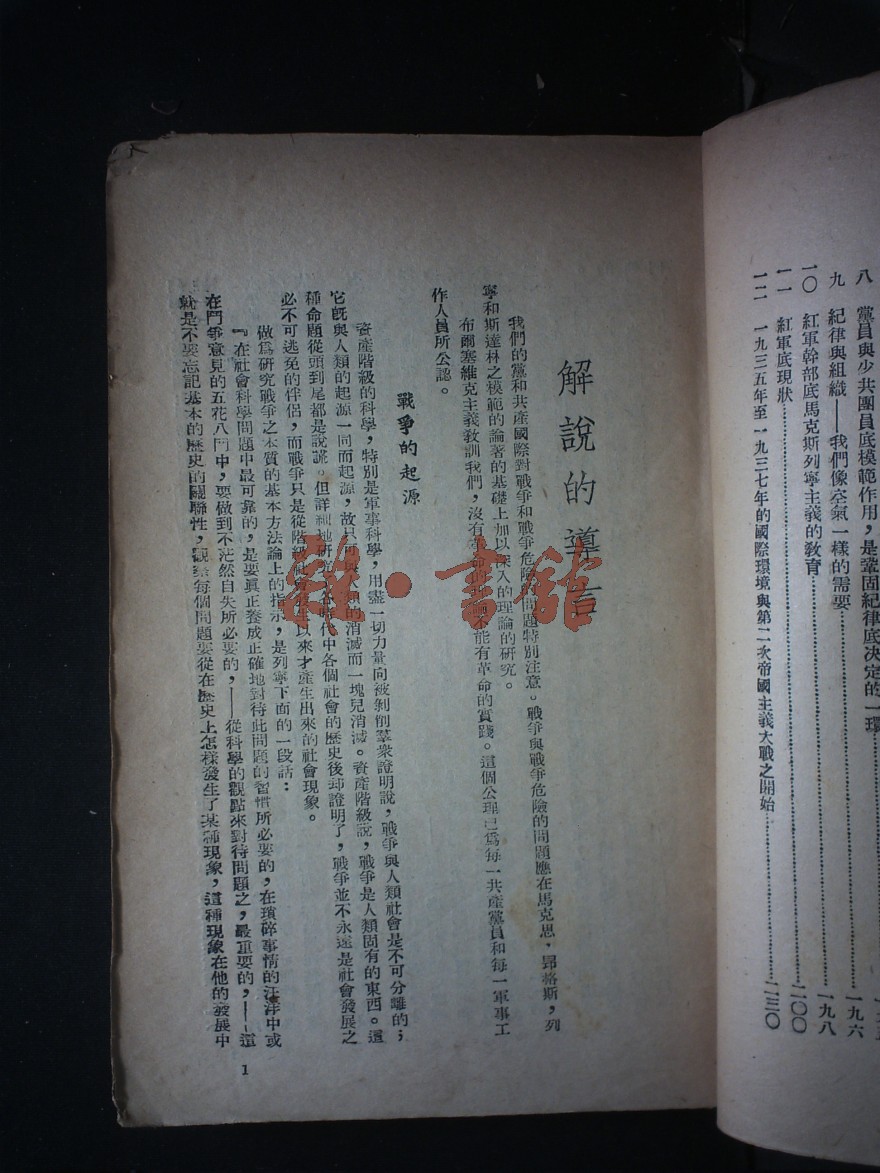 八　黨員與少共團員底模範作用，是鞏固紀律底决定的一環
九　紀律與組織——我們像空氣一樣的需要……一九六
一〇　紅軍幹部底馬克斯列寧主義的敎育……一九八
一一　紅軍底現狀……二〇〇
一二　一九三五年至一九三七年的國際環境與第二次帝國主義大戰之開始……二三〇
解說的導言
我們的黨和共產國際對戰爭和戰爭危險的問題特別注意。戰爭與戰爭危險的問題應在馬克思，昻格斯，列
寧和斯達林之模範的論著的基礎上加以深入的理論的研究。
布爾塞維克主義敎訓我們，沒有革命的理論不能有革命的實踐。這個公理已爲每一共產黨員和每一軍事工
作人員所公認。
戰爭的起源
資產階級的科學，特別是軍事科學，用盡一切力量向被剝削羣衆證明說，戰爭與人類社會是不可分離的；
它旣與人類的起源一同而起源，故只可與人類的消滅而一塊兒消滅。資產階級說，戰爭是人類固有的東西。這
種命題從頭到尾都是說謊。但詳細地研究各時代中各個社會的歷史後却證明了，戰爭並不永遠是社會發展之
必不可逃免的伴侶，而戰爭只是從階級社會發生以來才產生出來的社會現象。
做爲研究戰爭之本質的基本方法論上的指示，是列寧下面的一段話：
『在社會科學問題中最可靠的，是要眞正養成正確地對待此問題的習慣所必要的，在瑣碎事情的汪洋中或
在鬥爭意見的五花八門中，要做到不茫然自失所必要的，——從科學的觀點來對待問題之，最重要的，——這
就是不要忘記基本的歷史的關聯性，觀察每個問題要從在歷史上怎樣發生了某種現象，這種現象在他的發展中
1
雜·書館